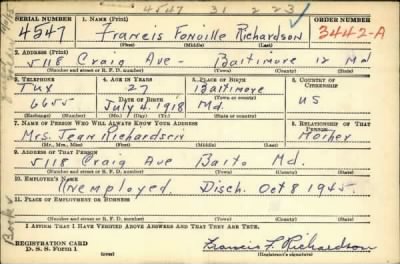 4547 31 2 23
SERIAL NUMBER 1. NAME (Print) ORDER NUMBER
4547 Francis Fonville Richardson 3442-A
(First) (Middle) (Last)
2. ADDRESS (Print)
5118 Craig Ave - Baltimore 12 Md
(Number and street or R. F. D. number) (Town) (County) (State)
3. TELEPHONE 4. AGE IN YEARS 5. PLACE OF BIRTH 6. COUNTRY OF CITIZENSHIP
Tux 27 Baltimore
(Town or county)
DATE OF BIRTH US
6655 July 4, 1918 Md.
(Exchange) (Number) (Mo.) (Day) (Yr.) (State or country)
7. NAME OF PERSON WHO WILL ALWAYS KNOW YOUR ADDRESS 8. RELATIONSHIP OF THAT PERSON
Mrs. Jean Richardson Mother
(Mr., Mrs., Miss) (First) (Middle) (Last)
9. ADDRESS OF THAT PERSON
5118 Craig Ave Balto Md.
(Number and street or R. F. D. number) (Town) (County) (State)
10. EMPLOYER'S NAME
Unemployed. Disch. Oct 8 1945.
11. PLACE OF EMPLOYMENT OR BUSINESS
(Number and street or R. F. D. number) (Town) (County) (State)
I AFFIRM THAT I HAVE VERIFIED ABOVE ANSWERS AND THAT THEY ARE TRUE.
REGISTRATION CARD
D. S. S. Form 1 (over) Francis F. Richardson
(Registrant's signature)